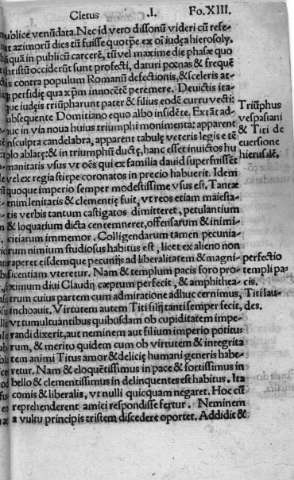 Cletus .I. Fo.XIII.
publice venũdata. Nec id vero dissonũ videri cũ rese-
rat azimorũ dies tũ fuisse quotpe ex oĩ iudęa hierosoly.
qua in publicũ carcerẽ, tũ vel maxime die phase quo
christũ occiderũt sunt profecti, daturi pœnas & frequẽ
tis contra populum Romanũ defectionis, & sceleris at-
per fidię qua xp̃m innocẽtẽ peremere. Deuictis ita-
que iudęis triũpharunt pater & filius eodẽ curru vecti:
subsequente Domitiano equo albo insidẽte. Extãt ad-
huc in via noua huius triumphi monimenta: apparent
insculpta candelabra, apparent tabulę veteris legis e tẽ
plo ablatę: & in triumphũ ductę, hanc esset inuictos hu
manitatis vsus vt oẽs qui ex familia dauid superfuissẽt
vel ex regia stirpe coronatos in precio habuerit. Idem
quoque imperio semper modestissime vsus est. Tantæ
enim lenitatis & clementię fuit, vt reos etiam maiesta-
tis verbis tantum castigatos dimitteret, petulantium
& loquarium dicta centemneret, offensarum & inimi-
citiarum immemor. Colligendarum tamen pecunia-
rum nimium studiosus habitus est, licet ex alieno non
raperet eisdemque pecunijs ad liberalitatem & magni-
ficentiam vteretur. Nam & templum pacis foro pro-
ximum diui Claudij cæptum perfecit, & amphithea-
trum cuius partem cum admiratione adhuc cernimus,
inchoauit. Virtutem autem Titi filij tanti semper fecit,
vt tumultuantibus quibusdam ob cupiditatem impe-
randi dixerit, aut neminem aut filium imperio potitu-
rum, & merito quidem cum ob virtutem & integrita
tem animi Titus amor & delicię humani generis habe-
retur. Nam & eloquẽtissimus in pace & fortissimus in
bello & clementissimus in delinquentes est habitus. Ita
comis & liberalis, vt nulli quicquam negaret. Hoc cũ
reprehenderent amici respondisse fertur. Neminem
a vultu principis tristem discedere oportet. Addidit &
Triũphus
vespasiani
& Titi de
euersione
hierusalẽ,
perfectio
templi pa
cis.
Titi lau-
des.